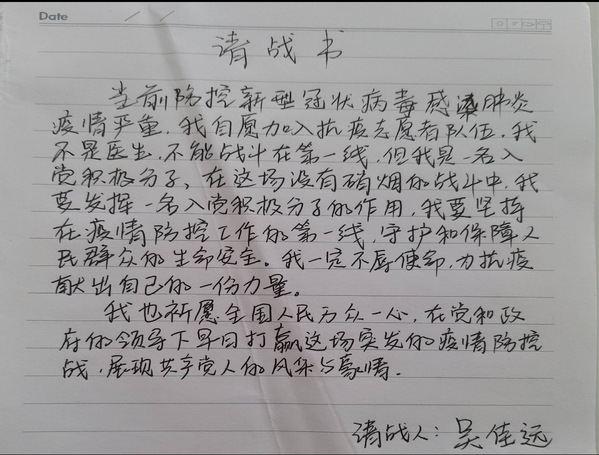 Date
请战书
当前防控新型冠状病毒感染肺炎
疫情严重,我自愿加入抗疫志愿者队伍,我
不是医生,不能战斗在第一线,但我是一名入
党积极分子、在这场没有硝烟的战斗中,我
要发挥一名入党积极分子的作用,我要坚持
在疫情防控工作的第一线,守护和保障人
民群众的生命安全。我一定不辱使命,为抗疫
献出自己的一份力量。
我也祈愿全国人民万众一心,在党和政
府的领导下早日打赢这场突发的疫情防控
战,展现共产党人的风采与豪情.
请战人:吴佳远